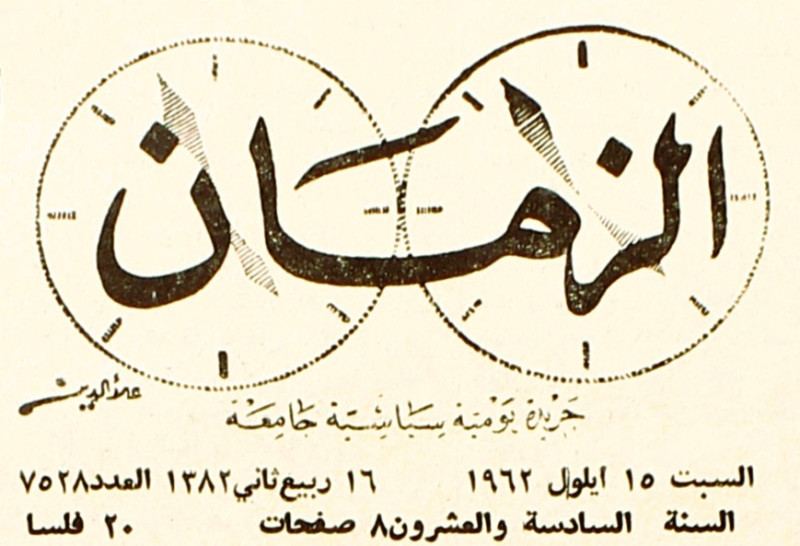 الزمان
علاء الدين
جريدة يومية سياسية جامعة
السبت ١٥ ايلول ١٩٦٢ ١٦ ربيع ثاني ١٣٨٢ العدد ٧٥٢٨
السنة السادسة والعشرون ٨ صفحات ٢٠ فلسا